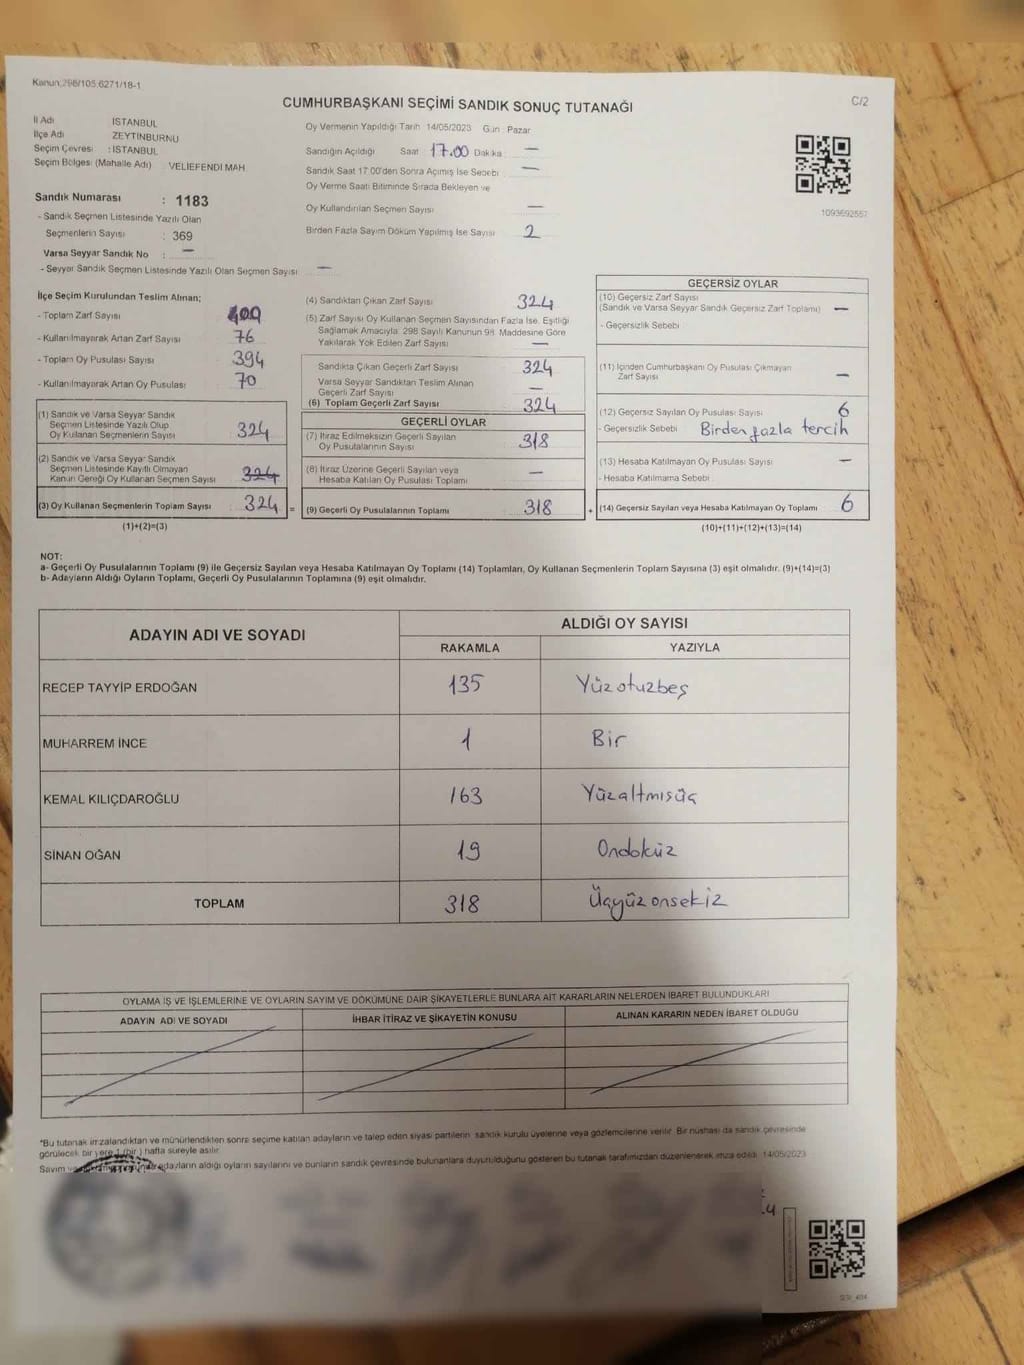 Kanun:298/105,6271/18-1
CUMHURBAŞKANI SEÇİMİ SANDIK SONUÇ TUTANAĞI
C/2
İl Adı İSTANBUL
İlçe Adı ZEYTİNBURNU
Seçim Çevresi : İSTANBUL
Seçim Bölgesi (Mahalle Adı) VELİEFENDİ MAH.
Sandık Numarası : 1183
- Sandık Seçmen Listesinde Yazılı Olan
Seçmenlerin Sayısı : 369
Varsa Seyyar Sandık No : —
- Seyyar Sandık Seçmen Listesinde Yazılı Olan Seçmen Sayısı —
Oy Vermenin Yapıldığı Tarih 14/05/2023 Gün : Pazar
Sandığın Açıldığı Saat 17.00 Dakika —
Sandık Saat 17.00'den Sonra Açılmış İse Sebebi —
Oy Verme Saati Bitiminde Sırada Bekleyen ve
Oy Kullandırılan Seçmen Sayısı —
Birden Fazla Sayım Döküm Yapılmış İse Sayısı 2
1093692557
İlçe Seçim Kurulundan Teslim Alınan;
- Toplam Zarf Sayısı 400
- Kullanılmayarak Artan Zarf Sayısı 76
- Toplam Oy Pusulası Sayısı 394
- Kullanılmayarak Artan Oy Pusulası 70
(1) Sandık ve Varsa Seyyar Sandık
Seçmen Listesinde Yazılı Olup
Oy Kullanan Seçmenlerin Sayısı 324
(2) Sandık ve Varsa Seyyar Sandık
Seçmen Listesinde Kayıtlı Olmayan
Kanun Gereği Oy Kullanan Seçmen Sayısı 324
(3) Oy Kullanan Seçmenlerin Toplam Sayısı 324 =
(1)+(2)=(3)
(4) Sandıktan Çıkan Zarf Sayısı 324
(5) Zarf Sayısı Oy Kullanan Seçmen Sayısından Fazla İse, Eşitliği
Sağlamak Amacıyla, 298 Sayılı Kanunun 98. Maddesine Göre
Yakılarak Yok Edilen Zarf Sayısı —
Sandıkta Çıkan Geçerli Zarf Sayısı 324
Varsa Seyyar Sandıktan Teslim Alınan
Geçerli Zarf Sayısı —
(6) Toplam Geçerli Zarf Sayısı 324
GEÇERLİ OYLAR
(7) İtiraz Edilmeksizin Geçerli Sayılan
Oy Pusulalarının Sayısı 318
(8) İtiraz Üzerine Geçerli Sayılan veya
Hesaba Katılan Oy Pusulası Toplamı —
(9) Geçerli Oy Pusulalarının Toplamı 318 +
GEÇERSİZ OYLAR
(10) Geçersiz Zarf Sayısı
(Sandık ve Varsa Seyyar Sandık Geçersiz Zarf Toplamı) —
- Geçersizlik Sebebi
(11) İçinden Cumhurbaşkanı Oy Pusulası Çıkmayan
Zarf Sayısı —
(12) Geçersiz Sayılan Oy Pusulası Sayısı 6
- Geçersizlik Sebebi Birden fazla tercih
(13) Hesaba Katılmayan Oy Pusulası Sayısı —
- Hesaba Katılmama Sebebi
(14) Geçersiz Sayılan veya Hesaba Katılmayan Oy Toplamı 6
(10)+(11)+(12)+(13)=(14)
NOT:
a- Geçerli Oy Pusulalarının Toplamı (9) ile Geçersiz Sayılan veya Hesaba Katılmayan Oy Toplamı (14) Toplamları, Oy Kullanan Seçmenlerin Toplam Sayısına (3) eşit olmalıdır. (9)+(14)=(3)
b- Adayların Aldığı Oyların Toplamı, Geçerli Oy Pusulalarının Toplamına (9) eşit olmalıdır.
ADAYIN ADI VE SOYADI
ALDIĞI OY SAYISI
RAKAMLA YAZIYLA
RECEP TAYYİP ERDOĞAN 135 Yüzotuzbeş
MUHARREM İNCE 1 Bir
KEMAL KILIÇDAROĞLU 163 Yüzaltmışüç
SİNAN OĞAN 19 Ondokuz
TOPLAM 318 Üçyüzonsekiz
OYLAMA İŞ VE İŞLEMLERİNE VE OYLARIN SAYIM VE DÖKÜMÜNE DAİR ŞİKAYETLERLE BUNLARA AİT KARARLARIN NELERDEN İBARET BULUNDUKLARI
ADAYIN ADI VE SOYADI İHBAR İTİRAZ VE ŞİKAYETİN KONUSU ALINAN KARARIN NEDEN İBARET OLDUĞU
*Bu tutanak imzalandıktan ve mühürlendikten sonra seçime katılan adayların ve talep eden siyasi partilerin sandık kurulu üyelerine veya gözlemcilerine verilir. Bir nüshası da sandık çevresinde
görülecek bir yere 1 (bir) hafta süreyle asılır.
Sayım ve adayların aldığı oyların sayılarını ve bunların sandık çevresinde bulunanlara duyurulduğunu gösteren bu tutanak tarafımızdan düzenlenerek imza edildi. 14/05/2023